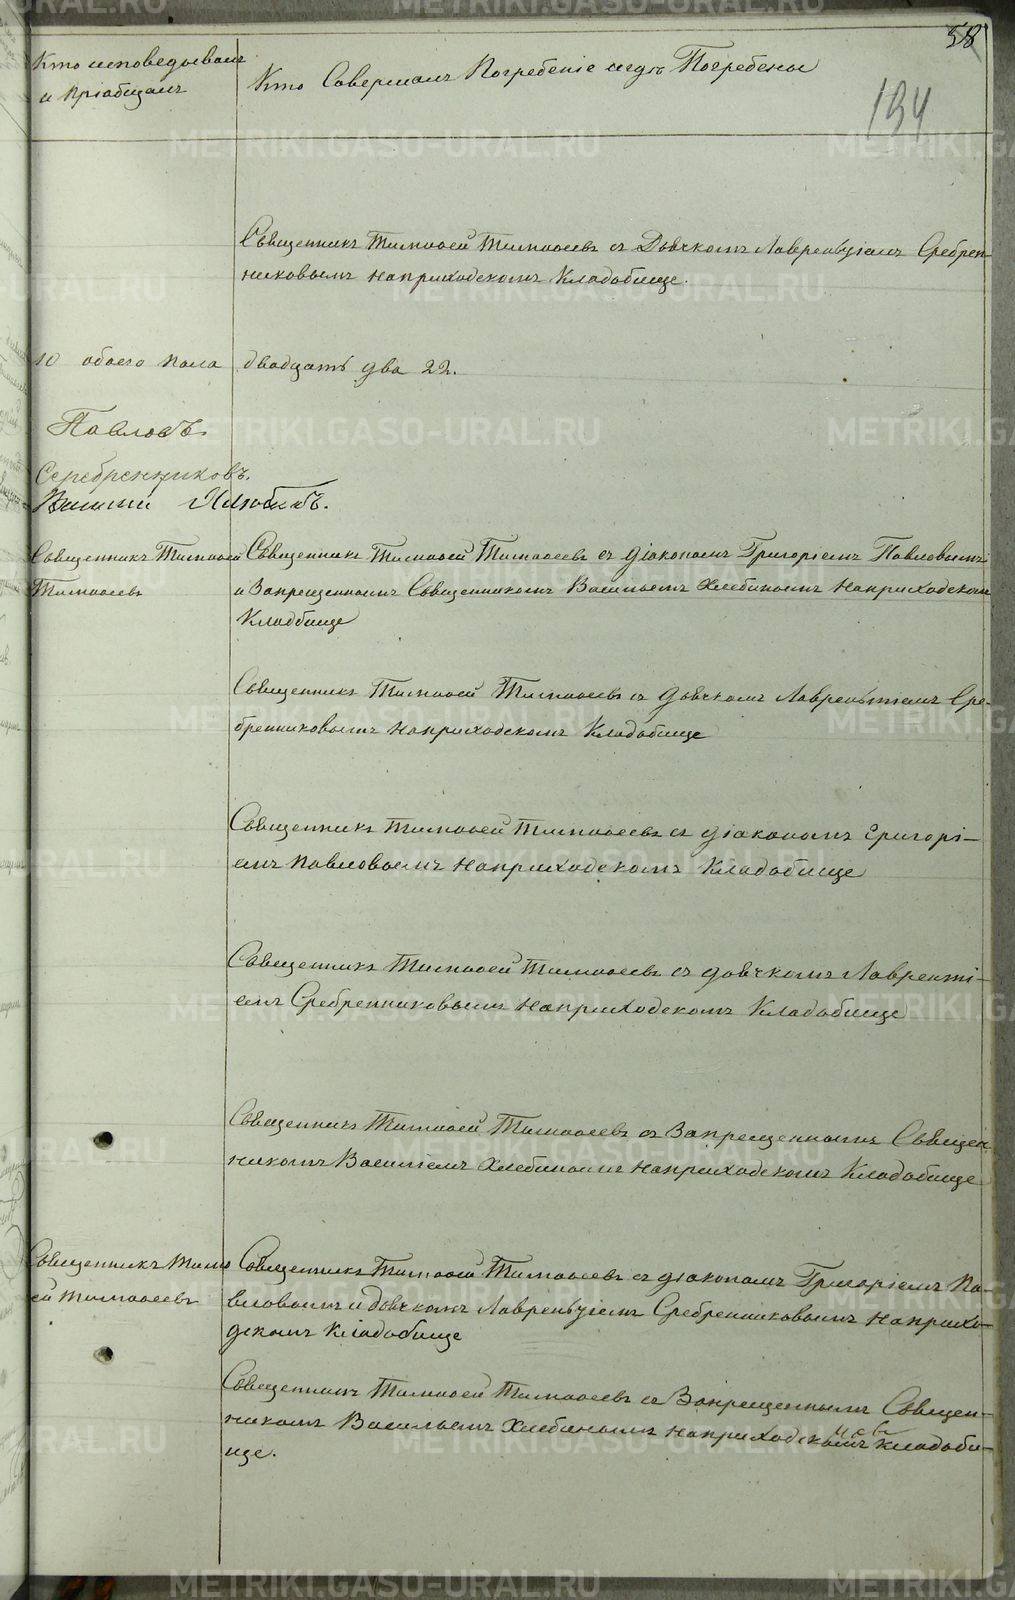 58
Кто исповедывалъ
и Пріобщалъ
Кто Совершалъ Погребеніе и гдѣ Погребены
194
Священникъ Тимоѳей Тимоѳеевъ съ Дьячкомъ Лаврентіемъ Сребрен-
никовымъ наприходскомъ Кладбище.
10 обоего пола двадцать два 22.
Павловъ
Серебренниковъ.
Василій Хлѣбинъ.
Священникъ Тимоѳей
Тимоѳеевъ
Священникъ Тимоѳей Тимоѳеевъ съ діакономъ Григоріемъ Павловымъ
и Запрещеннымъ Священникомъ Васильемъ Хлебинымъ Наприходскомъ
Кладбище
Священникъ Тимоѳей Тимоѳеевъ съ дьячкомъ Лаврентьемъ Сре-
бренниковымъ наприходскомъ Кладбище
Священникъ Тимоѳей Тимоѳеевъ съ діакономъ Григорі-
емъ Павловымъ наприходскомъ Кладбище
Священникъ Тимоѳей Тимоѳеевъ съ дьячкомъ Лавренті-
емъ Сребренниковымъ наприходскомъ Кладбище
Священникъ Тимоѳей Тимоѳеевъ съ Запрещеннымъ Священ-
никомъ Василіемъ Хлебинымъ наприходскомъ Кладбище
Священникъ Тимо
ей Тимоѳеевъ
Священникъ Тимоѳей Тимоѳеевъ съ діакономъ Григоріемъ Па-
вловымъ и дьячкомъ Лаврентіемъ Сребренниковымъ наприхо-
дскомъ Кладбище
Священникъ Тимоѳей Тимоѳеевъ съ Запрещеннымъ Священ-
никомъ Васильемъ Хлебинымъ наприходскомъ кладби-
ще.
METRIKI.GASO-URAL.RU